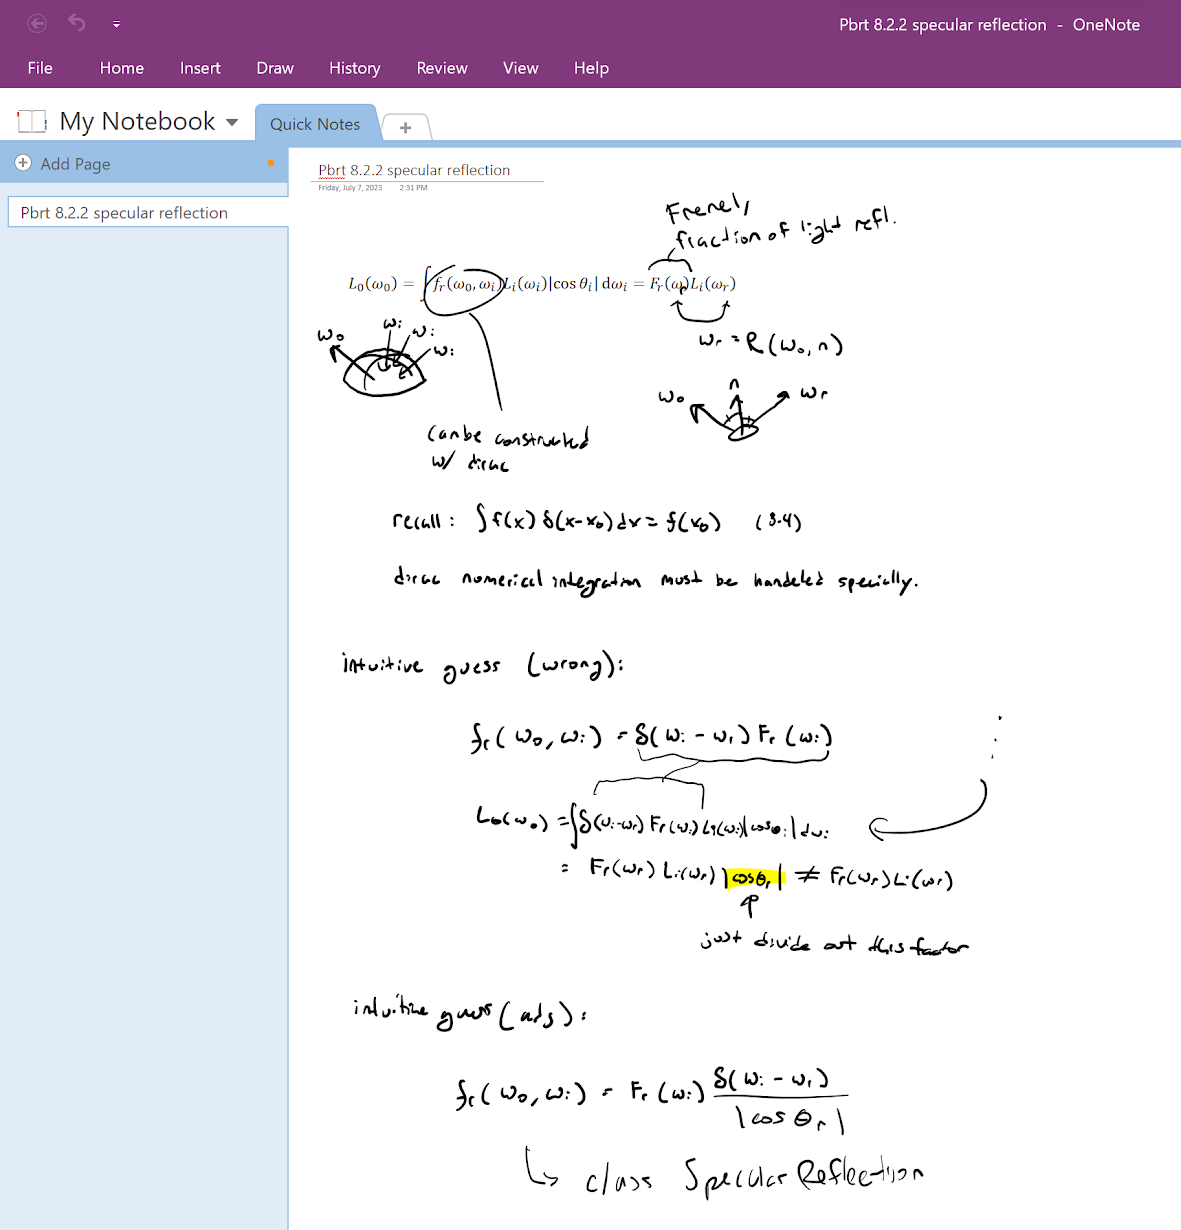 Pbrt 8.2.2 specular reflection - OneNote
File Home Insert Draw History Review View Help
My Notebook
Quick Notes
+
Add Page
Pbrt 8.2.2 specular reflection
Pbrt 8.2.2 specular reflection
Friday, July 7, 2023 2:31 PM
Frenel,
fraction of light refl.
L₀(ω₀) = ∫ fᵣ(ω₀, ωᵢ)Lᵢ(ωᵢ)|cos θᵢ| dωᵢ = Fᵣ(ωᵣ)Lᵢ(ωᵣ)
ωᵣ = R(ω₀, n)
ω₀ ωᵢ ωᵢ ωᵢ
ω₀ n ωᵣ
can be constructed
w/ dirac
recall: ∫ f(x) δ(x-x₀) dx = f(x₀) (8.4)
dirac numerical integration must be handeled specially.
intuitive guess (wrong):
fᵣ(ω₀, ωᵢ) = δ(ωᵢ - ωᵣ) Fᵣ(ωᵢ)
L₀(ω₀) = ∫ δ(ωᵢ-ωᵣ) Fᵣ(ωᵢ) Lᵢ(ωᵢ)|cosθᵢ| dωᵢ
= Fᵣ(ωᵣ) Lᵢ(ωᵣ) |cosθᵣ| ≠ Fᵣ(ωᵣ) Lᵢ(ωᵣ)
just divide out this factor
intuitive guess (adj):
fᵣ(ω₀, ωᵢ) = Fᵣ(ωᵢ) δ(ωᵢ - ωᵣ) / |cos θᵣ|
↳ class SpecularReflection